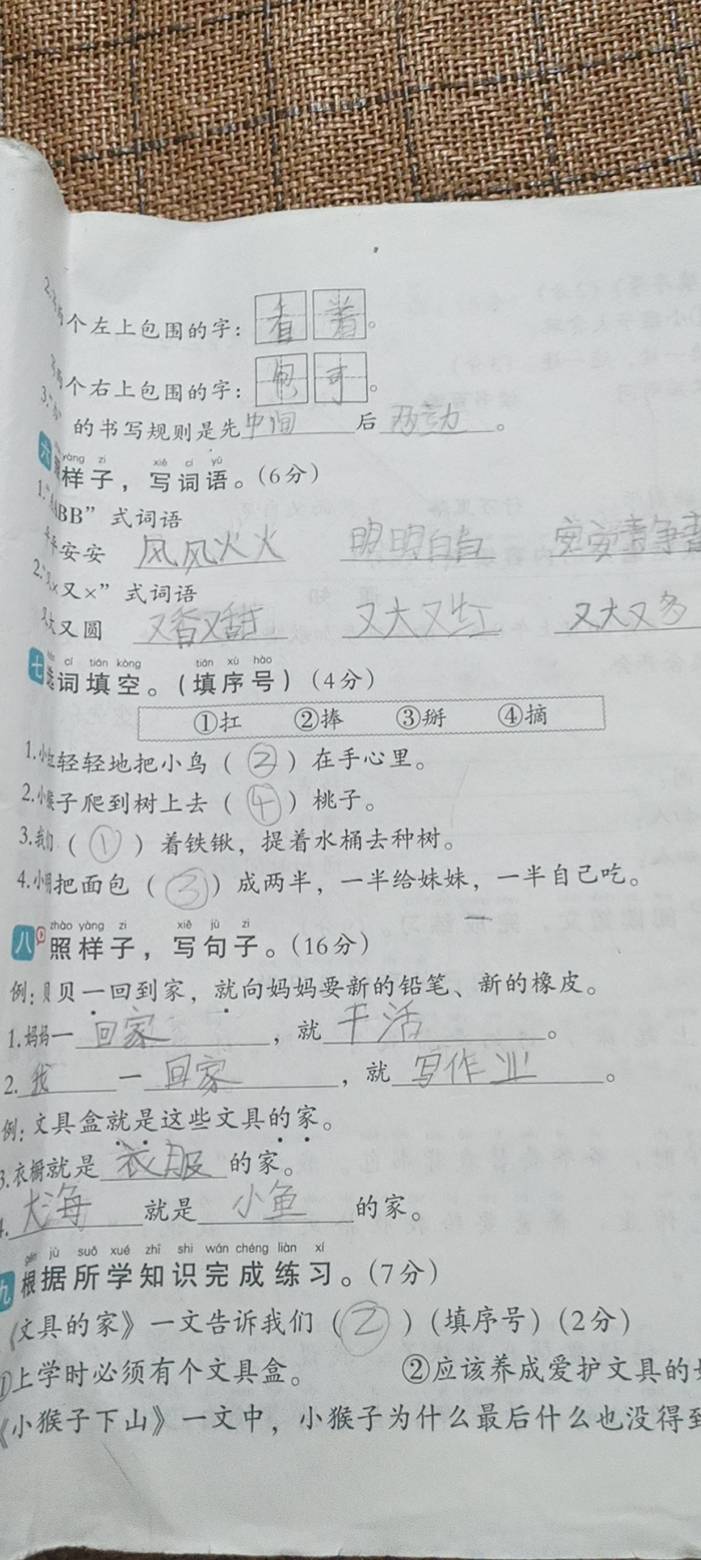 个左上包围的字：看 着。
个右上包围的字：包 可。
的书写规则是先中间后两边。
yàng zi xiě cí yǔ
样子，写词语。（6分）
1.“ABB”式词语
安安 风风火火 明明白白
2.“又×又×”式词语
又大又圆 又香又甜 又大又红 又大又多
cí tián kòng tián xù hào
七 选词填空。（填序号）（4分）
①扛 ②捧 ③掰 ④摘
1.小红轻轻地把小鸟（②）在手心里。
2.小猴子爬到树上去（④）桃子。
3.我们（①）着铁锹，提着水桶去种树。
4.小明把面包（③）成两半，一半给妹妹，一半自己吃。
zhào yàng zi xiě jù zi
八 照样子，写句子。（16分）
例：贝贝一回到家，就向妈妈要新的铅笔、新的橡皮。
1.妈妈一回家，就干活。
2.我一回家，就写作业。
例：文具盒就是这些文具的家。
3.衣橱就是衣服的家。
4.大海就是小鱼的家。
gēn jù suǒ xué zhī shi wán chéng liàn xí
九 根据所学知识完成练习。（7分）
《文具的家》一文告诉我们（②）（填序号）（2分）
①上学时必须有个文具盒。 ②应该养成爱护文具的
《小猴子下山》一文中，小猴子为什么最后什么也没得到